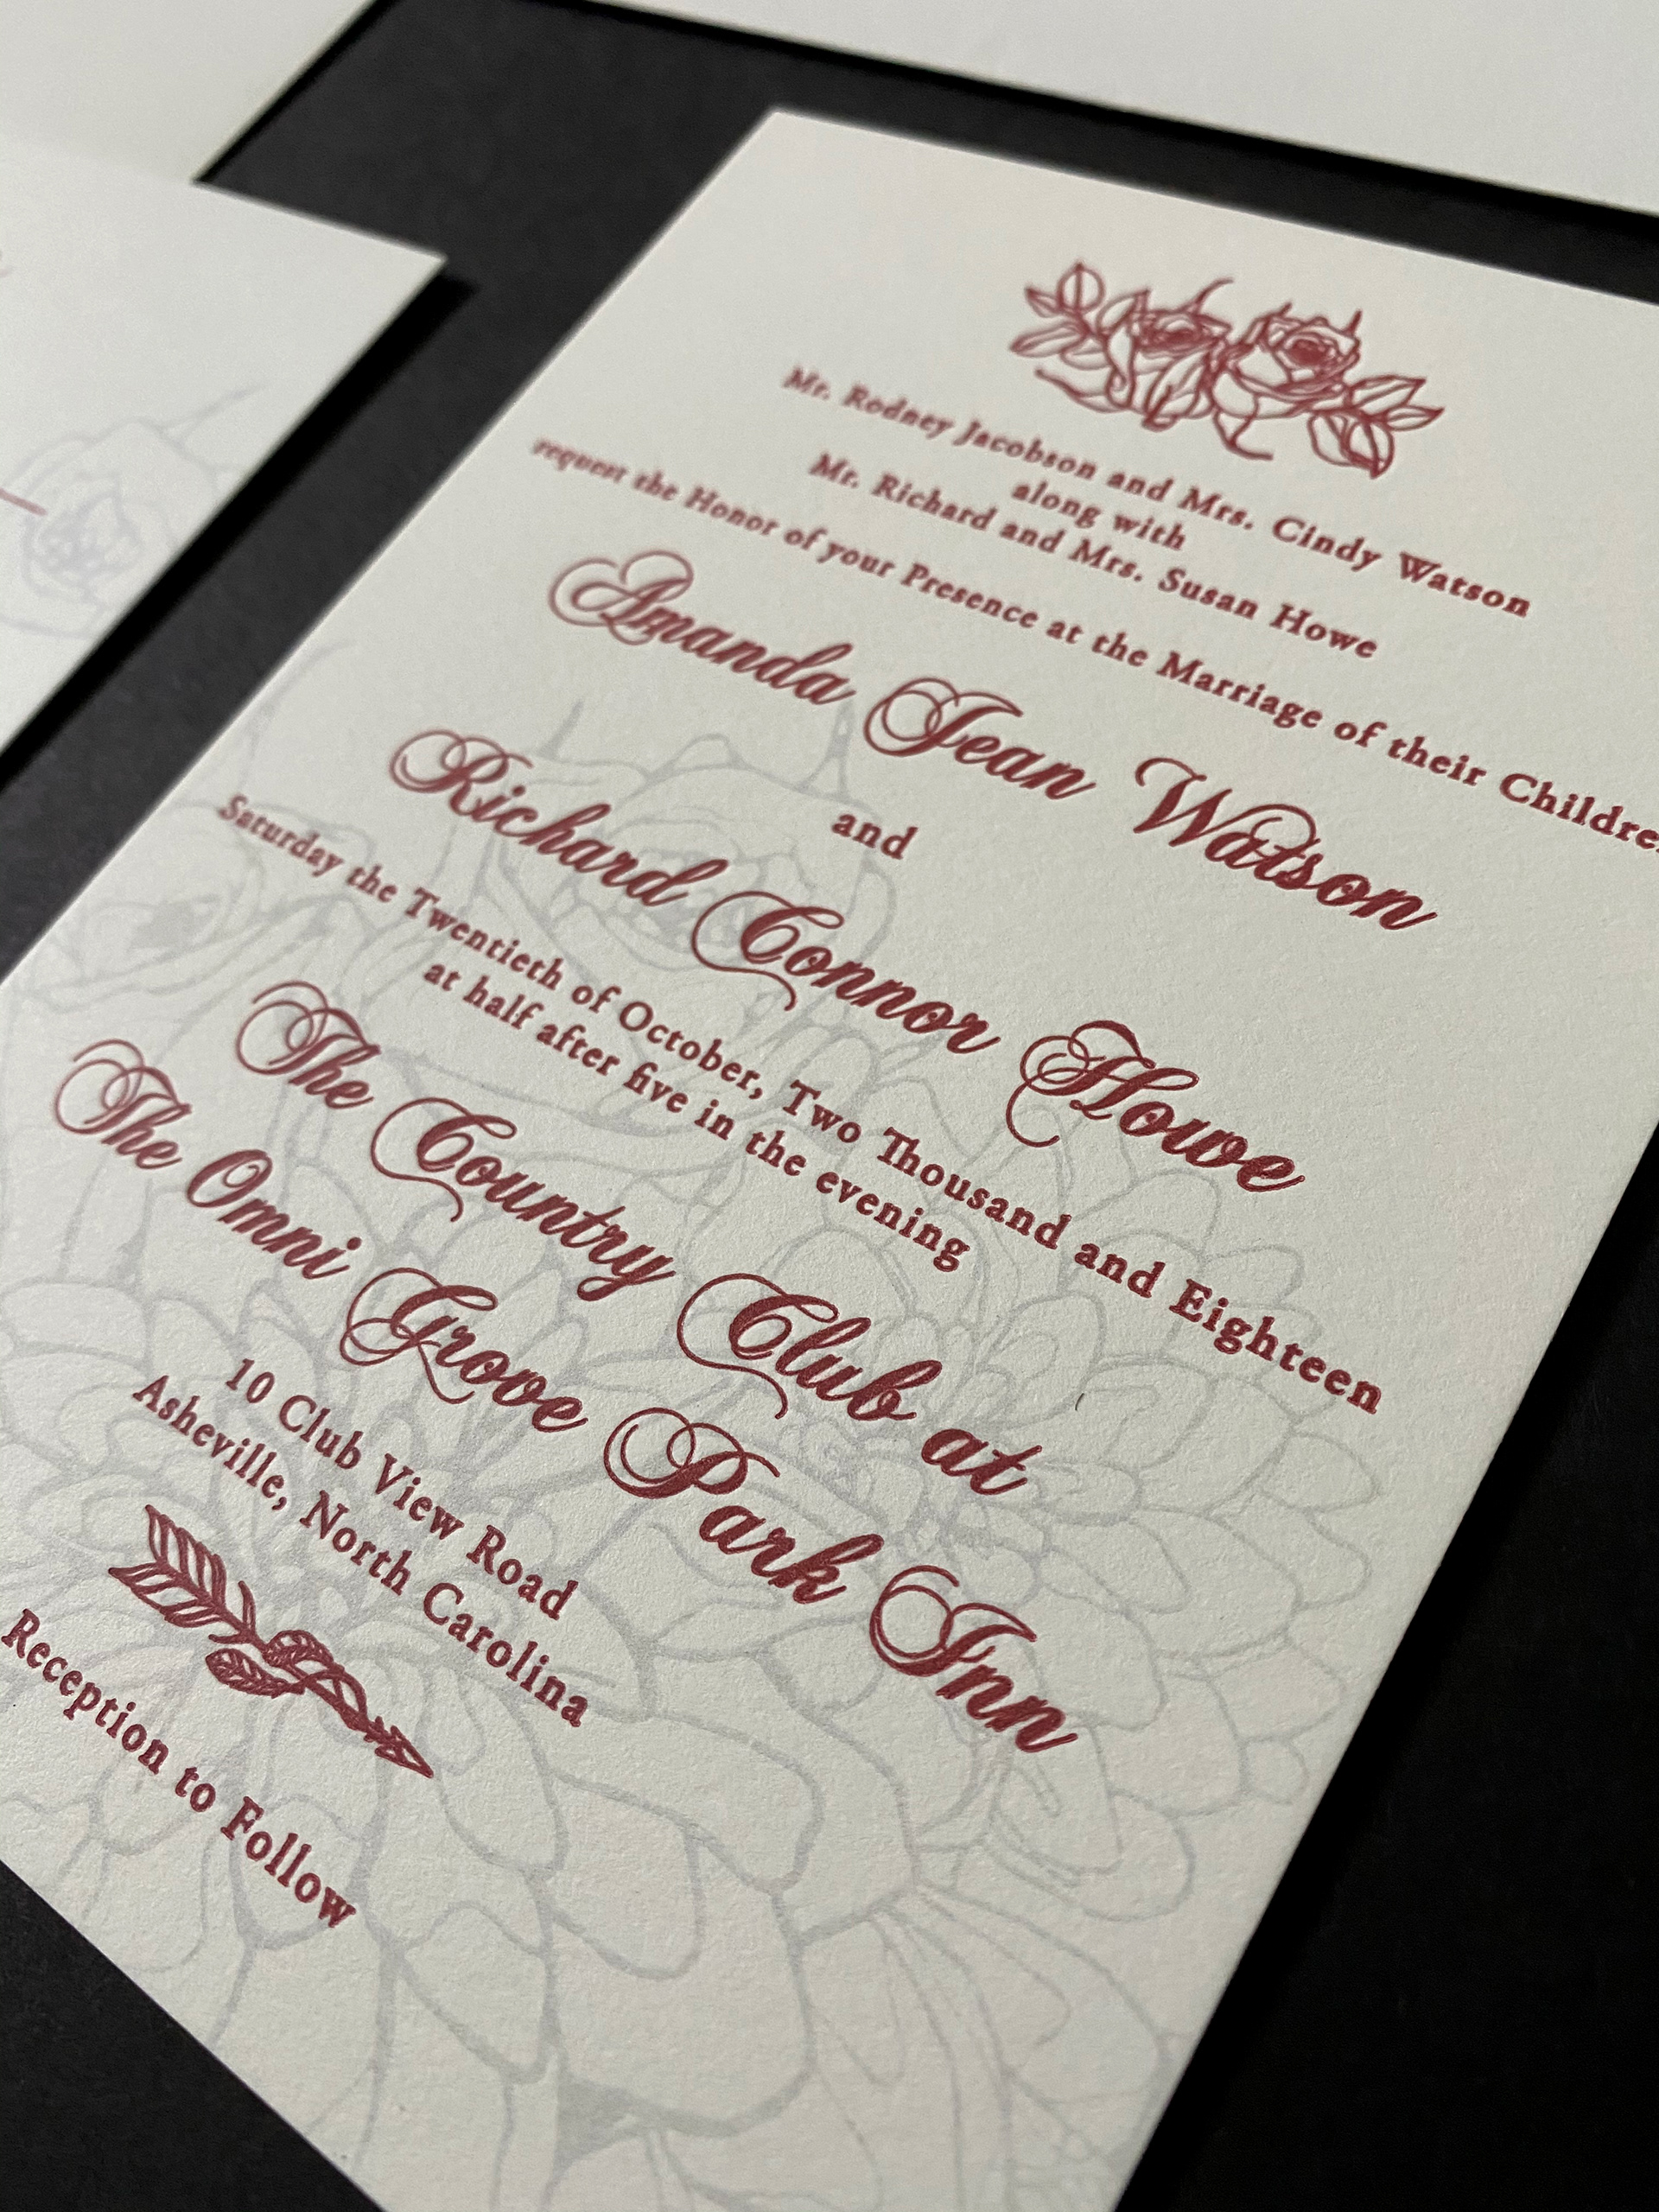 Mr. Rodney Jacobson and Mrs. Cindy Watson
along with
Mr. Richard and Mrs. Susan Howe
request the Honor of your Presence at the Marriage of their
Amanda Jean Watson
and
Richard Connor Howe
Saturday the Twentieth of October, Two Thousand and Eighteen
at half after five in the evening
The Country Club at
The Omni Grove Park Inn
10 Club View Road
Asheville, North Carolina
Reception to Follow